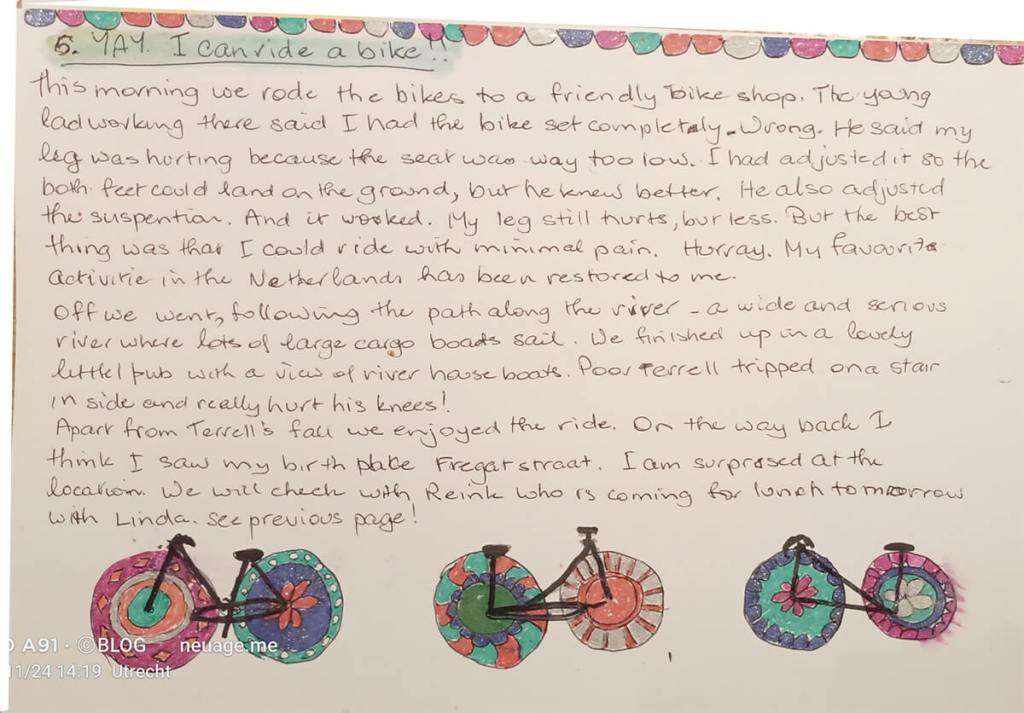 5. YAY. I can ride a bike!!
This morning we rode the bikes to a friendly bike shop. The young
lad working there said I had the bike set completely - Wrong. He said my
leg was hurting because the seat was way too low. I had adjusted it so the
both feet could land on the ground, but he knew better. He also adjusted
the suspention. And it worked. My leg still hurts, but less. But the best
thing was that I could ride with minimal pain. Hurray. My favourite
activitie in the Netherlands has been restored to me.
Off we went, following the path along the river - a wide and serious
river where lots of large cargo boats sail. We finished up in a lovely
little pub with a view of river house boats. Poor Terrell tripped on a stair
in side and really hurt his knees!
Apart from Terrell's fall we enjoyed the ride. On the way back I
think I saw my birth place Fregatstraat. I am surprosed at the
location. We will check with Reink who is coming for lunch tomorrow
with Linda. See previous page!
A91 · ©BLOG neuage.me
11/24 14:19 Utrecht